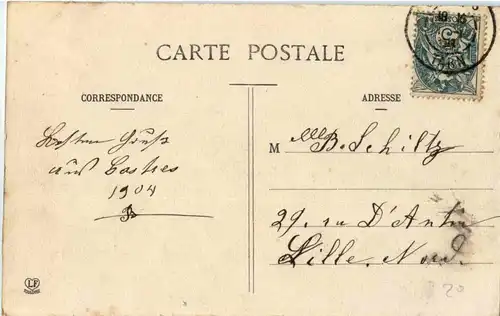 CARTE POSTALE
CORRESPONDANCE
Besten Gruß
aus Castres
1904
ADRESSE
M lle B. Schiltz
29, rue D'Antin
Lille. Nord.
LF
20